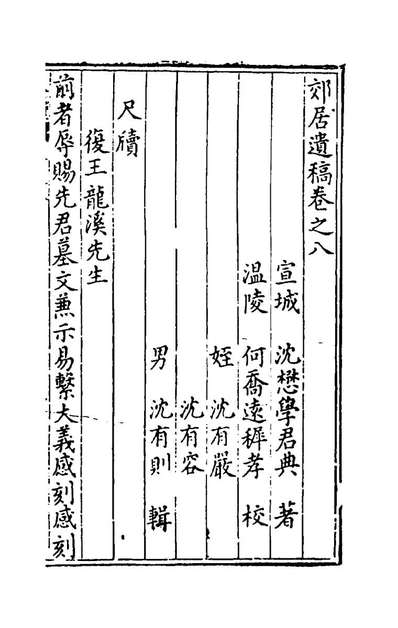 郊居遺稿卷之八
宣城 沈懋學君典 著
溫陵 何喬遠穉孝 校
姪 沈有嚴
沈有容
男 沈有則 輯
尺牘
復王龍溪先生
前者辱賜先君墓文兼示易繫大義感刻感刻